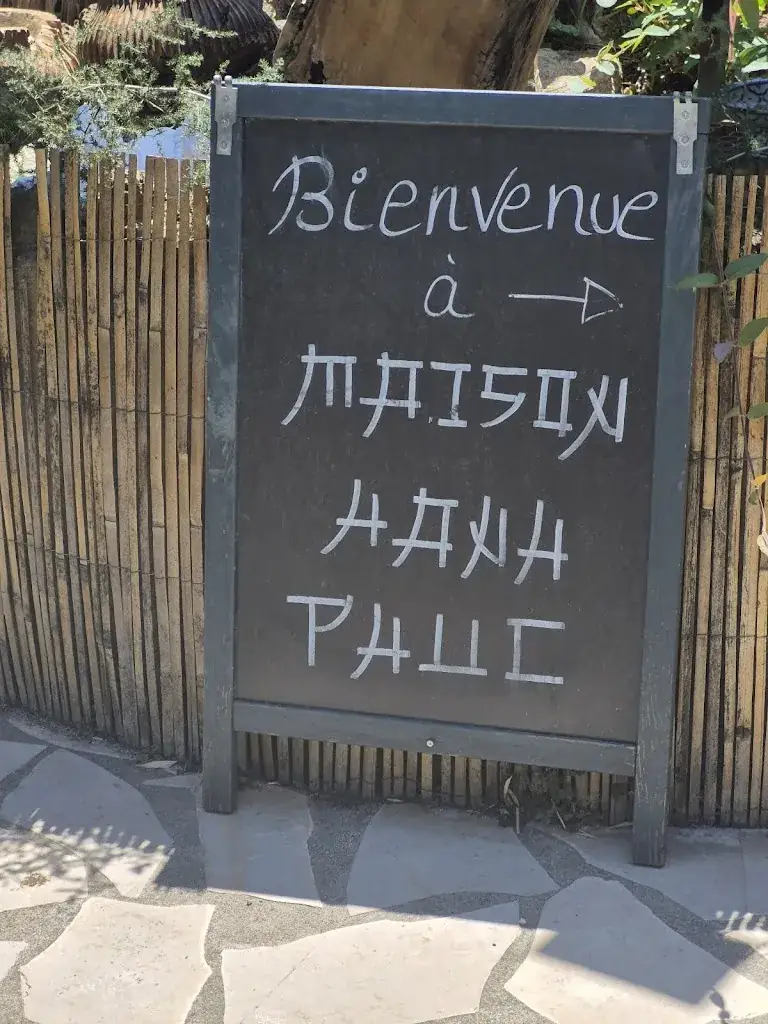 Bienvenue
à →
MAISON
HANH
PHUC